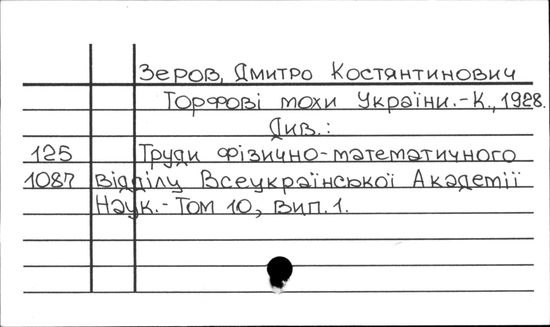 Зеров, Дмитро Костянтинович
Торфові мохи України.-К., 1928.
Див.:
125 Труди фізично-математичного
1087 відділу Всеукраїнської Академії
Наук.-Том 10, вип. 1.